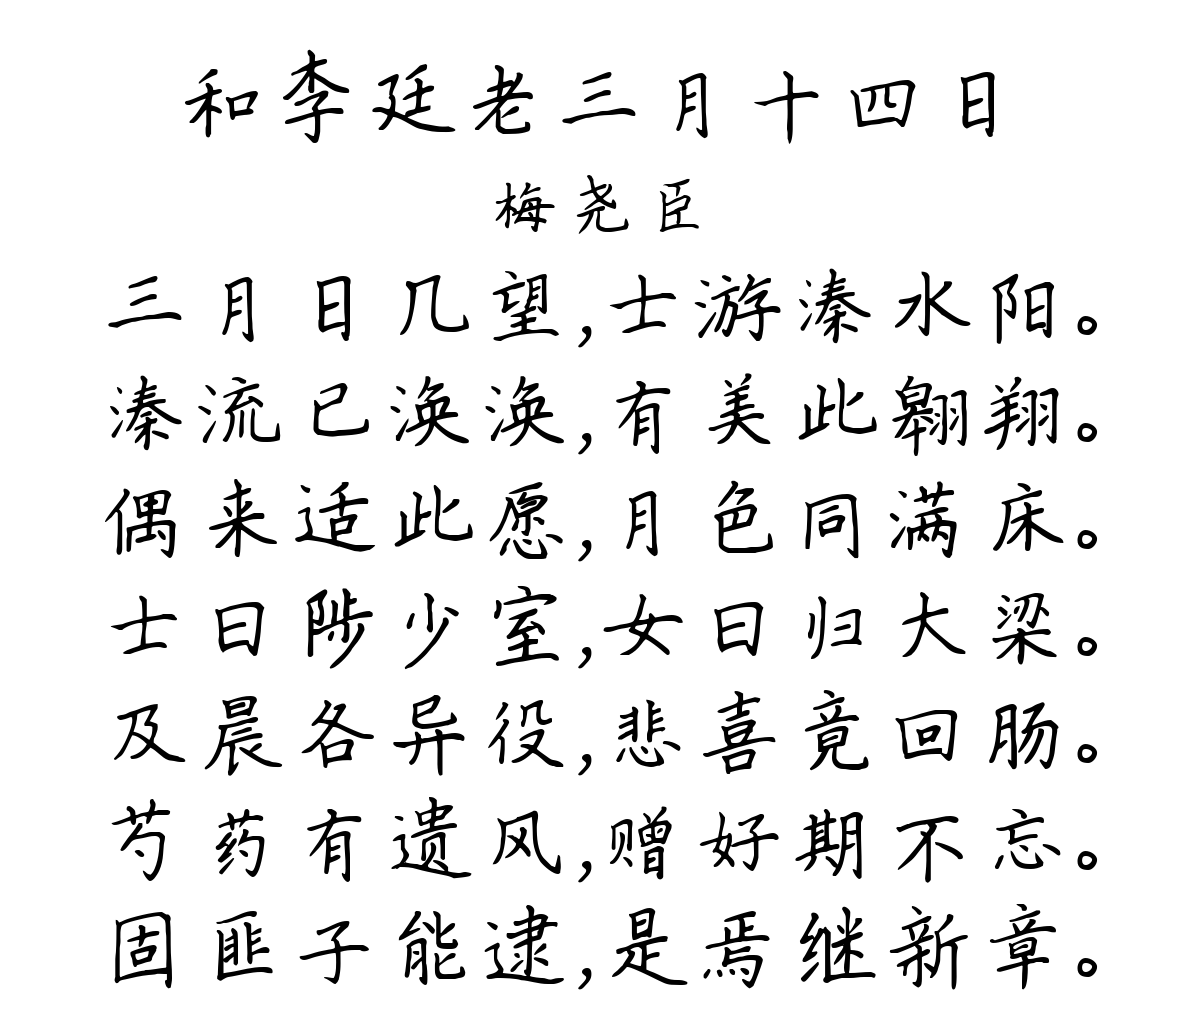 和李廷老三月十四日
梅尧臣
三月日几望,士游溱水阳。
溱流已涣涣,有美此翱翔。
偶来适此愿,月色同满床。
士曰陟少室,女曰归大梁。
及晨各异役,悲喜竟回肠。
芍药有遗风,赠好期不忘。
固匪子能逮,是焉继新章。